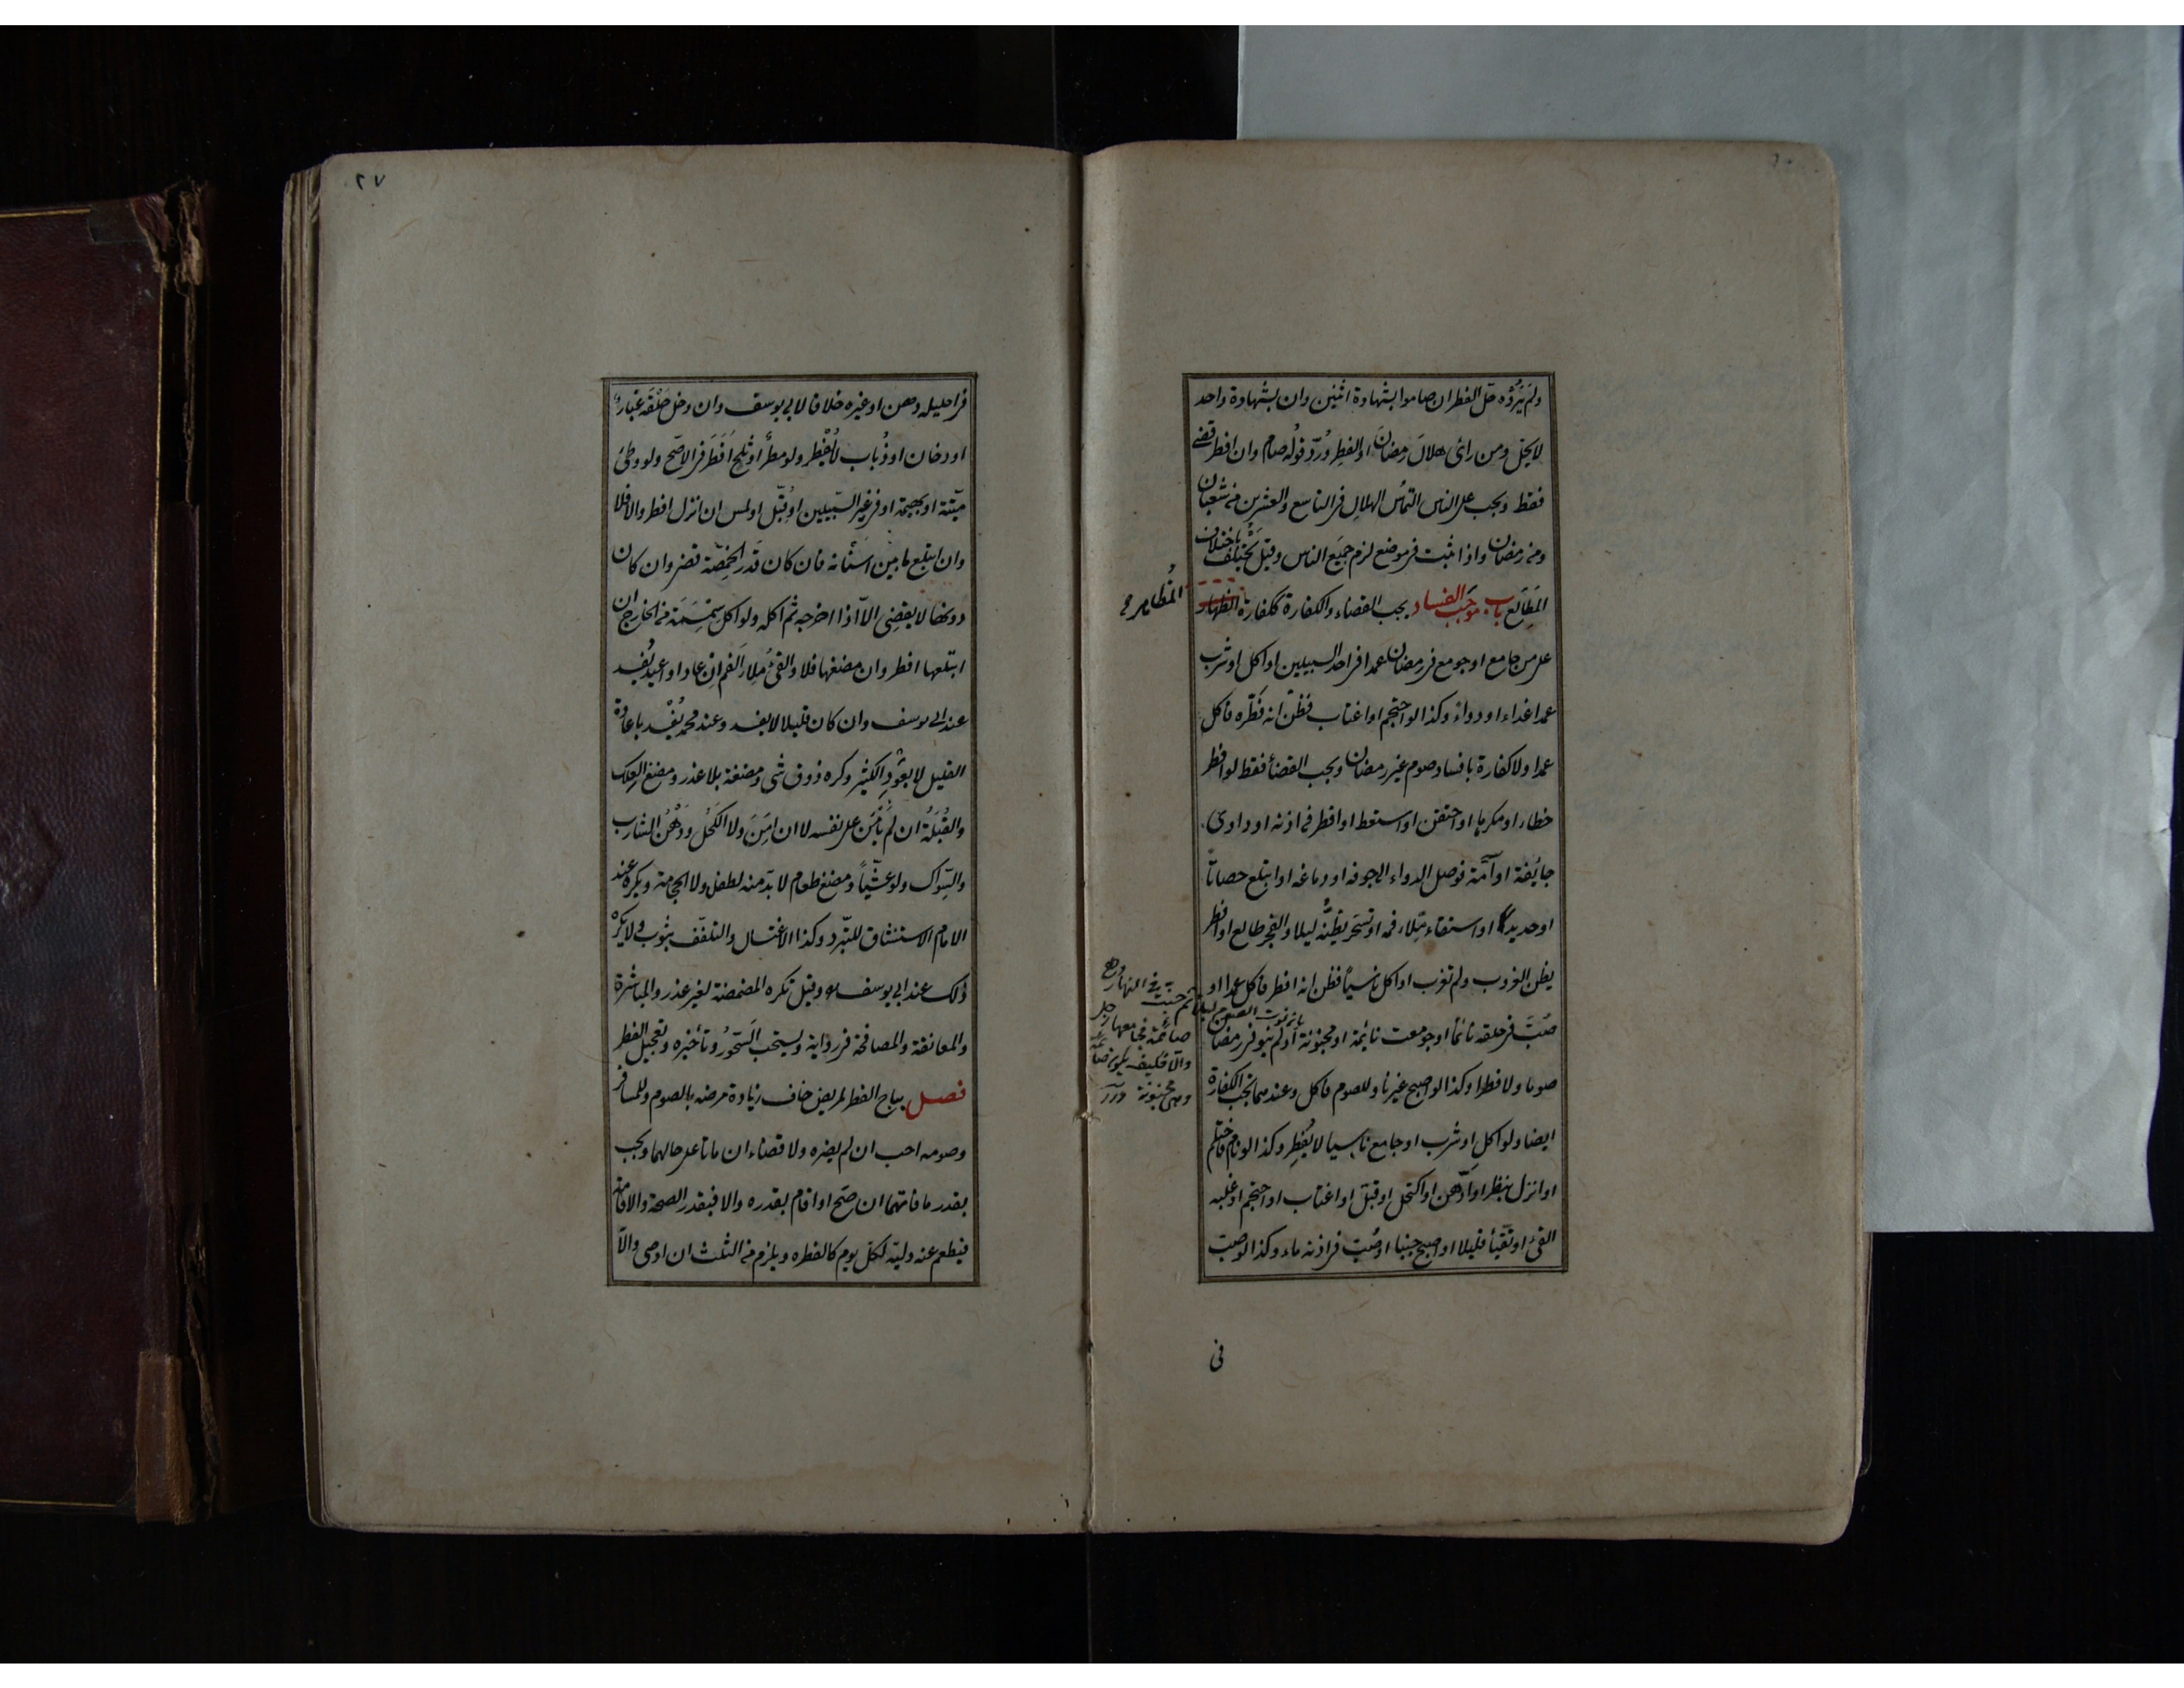 ولم يَرَوْه حلّ الفطر ان صاموا بشهادة اثنين وان بشهادة واحد
لا يحلّ ومن رأى هلالَ رمضانَ او الفطرِ ورُدّ قولُه صام وان افطر قضى
فقط ويجب على الناس التماسُ الهلالِ فى التاسع والعشرين من شعبان
ومن رمضان واذا ثبت فى موضع لزم جميع الناس وقيل يختلف باختلاف
المَطَالِع باب موجَب الفساد يجب القضاء والكفارة ككفارة الظهار
المُظاهر
على من جامع او جومع فى رمضان عمدا فى احد السبيلين او اكل او شرب
عمدا غذاء او دواءً وكذا لو احتجم او اغتاب فظَنّ انه فَطّره فاكل
عمدا ولا كفارة بافساد صوم غير رمضان ويجب القضاءُ فقط لو افطر
خطاء او مكرها او احتقن او استعط او اقطر فى اذنه او داوى
جائفة او آمّة فوصل الدواء الى جوفه او دماغه او ابتلع حصاتاً
او حديدا او استقاء مِلاء فمه او تسحّر يظنّه ليلا والفجر طالع او افطر
يظن الغروب ولم تغرب او اكل ناسياً فظن انه افطر فاكل عمدا او
صُبّ فى حلقه نائما او جومعت نائمة او مجنونة او لم ينو فى رمضان
صوما ولا فطرا وكذا لو اصبح غير ناو للصوم فاكل وعندهما تجب الكفارة
ايضا ولو اكل او شرب او جامع ناسيا لا يُفطِر وكذا لو نام فاحتلم
او انزل بنظر او ادّهن او اكتحل او قبّل او اغتاب او احتجم او غلبه
القئ او تقيّأ قليلا او اصبح جنبا او صُبّ فى اذنه ماء وكذا لو صبّ
بان نوت الصوم ليلا ثم جنت فى النهار وهى
صائمة فجامعها رجل
والا فكيف يكون صائمة
وهى مجنونة درر
فى
٢٧
فى احليله دهن او غيره خلافا لابى يوسف وان دخل حَلْقَه غبارٌ
او دخان او ذُباب لا يُفْطِر ولو مطرٌ او ثلجٌ اَفْطَرَ فى الاصَحّ ولو وطئ
ميّتة او بهيمة او فى غير السّبيلين او قبّل او لمس ان انزل افطر والا فلا
وان ابتلع ما بين اسنانه فان كان قدرَ الحِمّصَة قضى وان كان
دونها لا يقضِى الاّ اذا اخرجه ثم اكله ولو اكل سِمْسِمَة من الخارج ان
ابتلعها افطر وان مضغها فلا والقئُ مِلاءَ الفم ان عاد او اعيد يُفسِد
عند ابى يوسف وان كان قليلا لا يفسد وعند محمد يُفْسِد باعادة
القليل لا بعَوْدِ الكثير وكره ذوق شئ ومضغه بلا عذر ومضغ العِلك
والقُبْلَةُ ان لم يأمَن على نفسه لا ان اَمِنَ ولا الكَحْل ودَهْنُ الشارب
والسّواك ولو عشيّاً ومضغ طعام لا بدّ منه لطفل ولا الحجامة ويكره عند
الامام الاستنشاق للتبرّد وكذا الاغتسال والتلفّف بثوب ولا يكره
ذلك عند ابى يوسف وقيل تكره المضمضة لغير عذر والمباشرة
والمعانقة والمصافحة فى رواية ويستحب السَّحورُ وتأخيره وتعجيل الفطر
فصل يباح الفطر لمريض خاف زيادة مرضه بالصوم وللمسافر
وصومه احب ان لم يضره ولا قضاء ان ماتا على حالهما ويجب
بقدر ما فاتهما ان صَحّ او اقام بقدره والا فبقدر الصحة والاقامة
فيطعم عنه وليّه لكلّ يوم كالفطره ويلزم من الثلث ان اوصى والّا